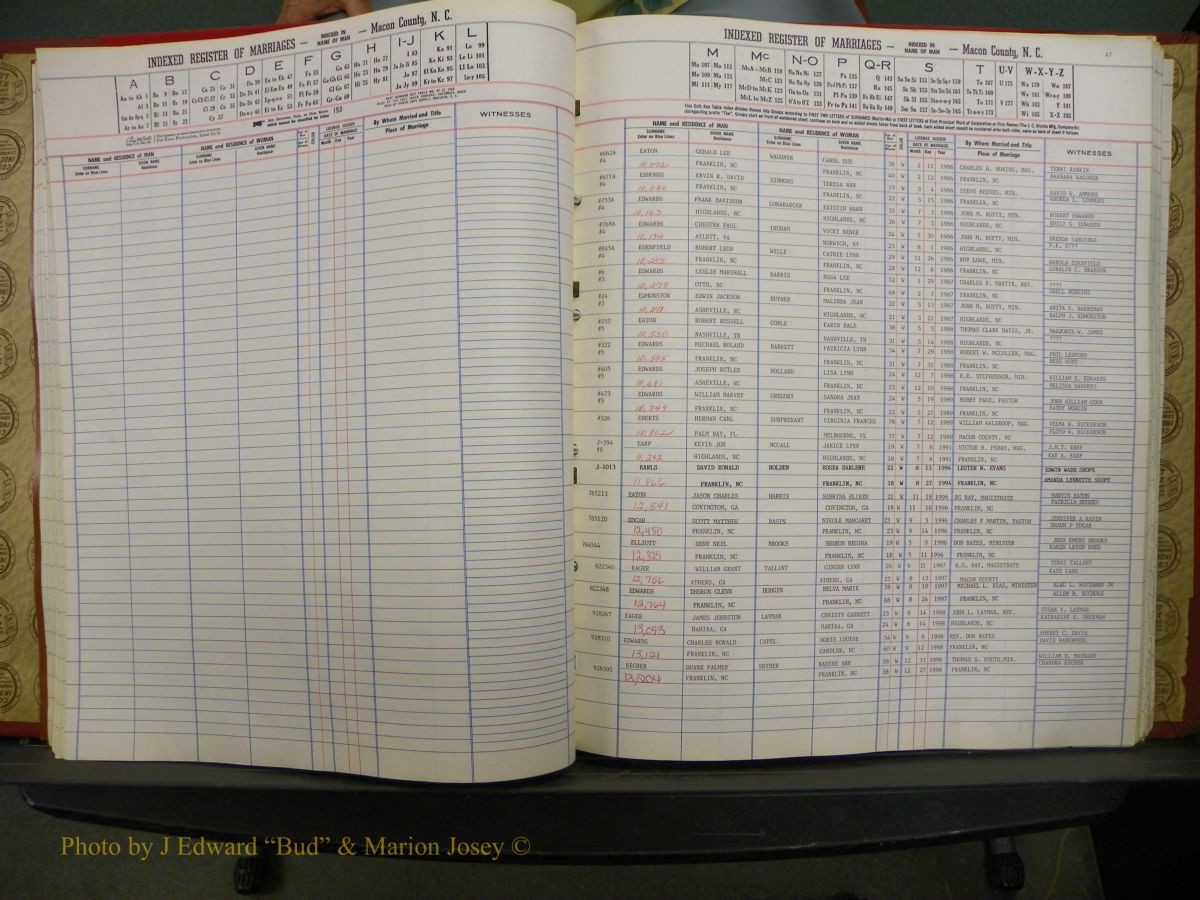 INDEXED REGISTER OF MARRIAGES — INDEXED IN NAME OF MAN — Macon County, N. C.
A B C D E F G H I-J K L
193
NAME and RESIDENCE of MAN NAME and RESIDENCE of WOMAN LICENSE ISSUED DATE OF MARRIAGE By Whom Married and Title Place of Marriage WITNESSES
SURNAME Enter on Blue Lines GIVEN NAME Residence SURNAME Enter on Blue Lines GIVEN NAME Residence COLOR Month Day Year
INDEXED REGISTER OF MARRIAGES — INDEXED IN NAME OF MAN — Macon County, N. C. 47
M Mc N-O P Q-R S T U-V W-X-Y-Z
NAME and RESIDENCE of MAN NAME and RESIDENCE of WOMAN LICENSE ISSUED DATE OF MARRIAGE By Whom Married and Title Place of Marriage WITNESSES
SURNAME Enter on Blue Lines GIVEN NAME Residence SURNAME Enter on Blue Lines GIVEN NAME Residence COLOR Month Day Year
#662A EATON GERALD LEE WAGONER CAROL SUE 38 W 2 11 1986 CHARLES H. BORING, MAG. TERRI RANKIN
#4 10,072 FRANKLIN, NC FRANKLIN, NC 40 W 2 12 1986 FRANKLIN, NC BARBARA WAGONER
#671A EDMONDS ERVIN R. DAVID SIMMONS TERESA ANN 19 W 3 4 1986 STEVE REEVES, MIN. DAVID W. AMMONS
#4 10,080 FRANKLIN, NC FRANKLIN, NC 22 W 3 15 1986 FRANKLIN, NC RHONDA L. SIMMONS
#753A EDWARDS FRANK DAVIDSON LONABARGER KRISTIN HAWN 35 W 7 3 1986 JOHN M. RUFTY, MIN. ROBERT EDWARDS
#4 10,163 HIGHLANDS, NC HIGHLANDS, NC 26 W 7 5 1986 HIGHLANDS, NC EMILY G. EDWARDS
#768A EDWARDS CHESTER PAUL INGHAM VICKI RENEE 24 W 7 30 1986 JOHN M. RUFTY, MIN. BRENDA SANGIDGE
#4 10,174 AYLETT, VA NORWICH, NY 25 W 8 1 1986 HIGHLANDS, NC
#845A EDENFIELD ROBERT LEON WILLE CATHIE LYNN 29 W 11 26 1986 ROY LOWE, MIN. HAROLD EDENFIELD
#4 10,255 FRANKLIN, NC FRANKLIN, NC 28 W 12 6 1986 FRANKLIN, NC LORALYN C. BRABSON
#6 EDWARDS LESLIE MARSHALL HARRIS ROSA LEE 72 W 1 29 1987 CHARLES F. MARTIN, REV. ????
#5 10,279 OTTO, NC FRANKLIN, NC 68 W 2 7 1987 FRANKLIN, NC ODELL HODGINS
#24 EDMONSTON EDWIN JACKSON BUYHER MALINDA JEAN 22 W 3 13 1987 JOHN M. RUFTY, MIN. ANITA S. HARRIMAN
#5 10,291 ASHEVILLE, NC HIGHLANDS, NC 21 W 3 21 1987 HIGHLANDS, NC RALPH J. EDMONSTON
#257 EATON ROBERT RUSSELL COBLE KARIN DALE 38 W 5 3 1988 THOMAS CLARK DAVIS, JR. MARJORIE W. JAMES
#5 10,530 NASHVILLE, TN NASHVILLE, TN 31 W 5 14 1988 HIGHLANDS, NC ????
#322 EDWARDS MICHAEL ROLAND BARRETT PATRICIA LYNN 34 W 7 29 1988 ROBERT W. MCCULLEN, MAG. PHIL LEDFORD
#5 10,595 FRANKLIN, NC FRANKLIN, NC 31 W 7 31 1988 FRANKLIN, NC BESS HUNT
#405 EDWARDS JOSEPH BUTLER HOLLAND LISA LYNN 24 W 12 7 1988 R.E. STEPHENSON, MIN. WILLIAM E. EDWARDS
#5 10,681 ASHEVILLE, NC FRANKLIN, NC 23 W 12 10 1988 FRANKLIN, NC MELISSA SANDERS
#473 EDWARDS WILLIAM HARVEY GREGORY SANDRA JEAN 24 W 5 19 1989 BOBBY PAGE, PASTOR JOHN WILLIAM COOK
#5 10,749 FRANKLIN, NC FRANKLIN, NC 22 W 5 27 1989 FRANKLIN, NC KATHY HODGIN
#526 EBERTS HERMAN CARL SURPRENANT VIRGINIA FRANCES 78 W 7 12 1989 WILLIAM WALDROOP, MAG. VELMA M. DICKERSON
10,802 PALM BAY, FL MELBOURNE, FL 77 W 7 12 1989 MACON COUNTY, NC FLOYD W. DICKERSON
J-394 EARP KEVIN JON MCCALL JANICE LYNN 19 W 7 8 1991 VICTOR H. PERRY, MAG. J.M.T. EARP
#6 11,242 HIGHLANDS, NC HIGHLANDS, NC 18 W 7 8 1991 FRANKLIN, NC KAY A. EARP
J-1013 EARLS DAVID RONALD HOLDEN ROSEA DARLENE 22 W 8 15 1994 LESTER N. EVANS EDWIN WADE SHOPE
11,866 FRANKLIN, NC FRANKLIN, NC 18 W 8 27 1994 FRANKLIN, NC AMANDA LYNNETTE SHOPE
765213 EATON JASON CHARLES HARRIS SABRINA EILEEN 21 W 11 18 1996 RG RAY, MAGISTRATE MARVIN EATON
12,541 COVINGTON, GA COVINGTON, GA 19 W 11 18 1996 FRANKLIN, NC PATRICIA HUGHES
765120 EDGAR SCOTT MATTHEW RASIN NIKOLE MARGARET 23 W 9 3 1996 CHARLES F MARTIN, PASTOR JENNIFER A RADIN
12,450 FRANKLIN, NC FRANKLIN, NC 23 W 9 14 1996 FRANKLIN, NC SHAWN P EDGAR
764544 ELLIOTT DENY NEIL BROOKS SHARON REGINA 19 W 5 9 1996 DON BATES, MINISTER JESS EMERY BROOKS
12,325 FRANKLIN, NC FRANKLIN, NC 18 W 5 11 1996 FRANKLIN, NC KAREN LEIGH REED
822340 EAGER WILLIAM GRANT TALLANT GINGER LYNN 26 W 8 13 1997 R.G. RAY, MAGISTRATE TERRI TALLENT
12,756 ATHENS, GA ATHENS, GA 23 W 8 13 1997 MACON COUNTY KAYE CABE
822348 EDWARDS THERON GLENN HODGIN BELVA MARIE 78 W 8 18 1997 MICHAEL L. RIAS, MINISTER ALEC L. SOUTHARD JR
12,764 FRANKLIN, NC FRANKLIN, NC 68 W 8 24 1997 FRANKLIN, NC ALLEN R. NICHOLS
928267 EAGER JAMES JOHNSTON LAYMAN CHRISTY GARRETT 23 W 8 14 1998 JOHN L. LAYMAN, REV. SUSAN V. LAYMAN
13,093 HAHIRA, GA HAHIRA, GA 24 W 8 14 1998 HIGHLANDS, NC KATHARINE E. SHERMAN
928310 EDWARDS CHARLES RONALD CAPEL DORIS LOUISE 54 W 9 9 1998 REV. DON BATES SHERRI C. DAVIS
13,121 FRANKLIN, NC CANDLER, NC 60 W 9 12 1998 FRANKLIN, NC DAVID HABERMEHL
928395 EICHER DUANE PALMER SNYDER NADINE ANN 38 W 12 11 1998 THOMAS S. FOUTS,MIN. WILLIAM D. MAYNARD
13,204 FRANKLIN, NC FRANKLIN, NC 38 W 12 27 1998 FRANKLIN, NC CHANDRA EICHER
Photo by J Edward “Bud” & Marion Josey ©